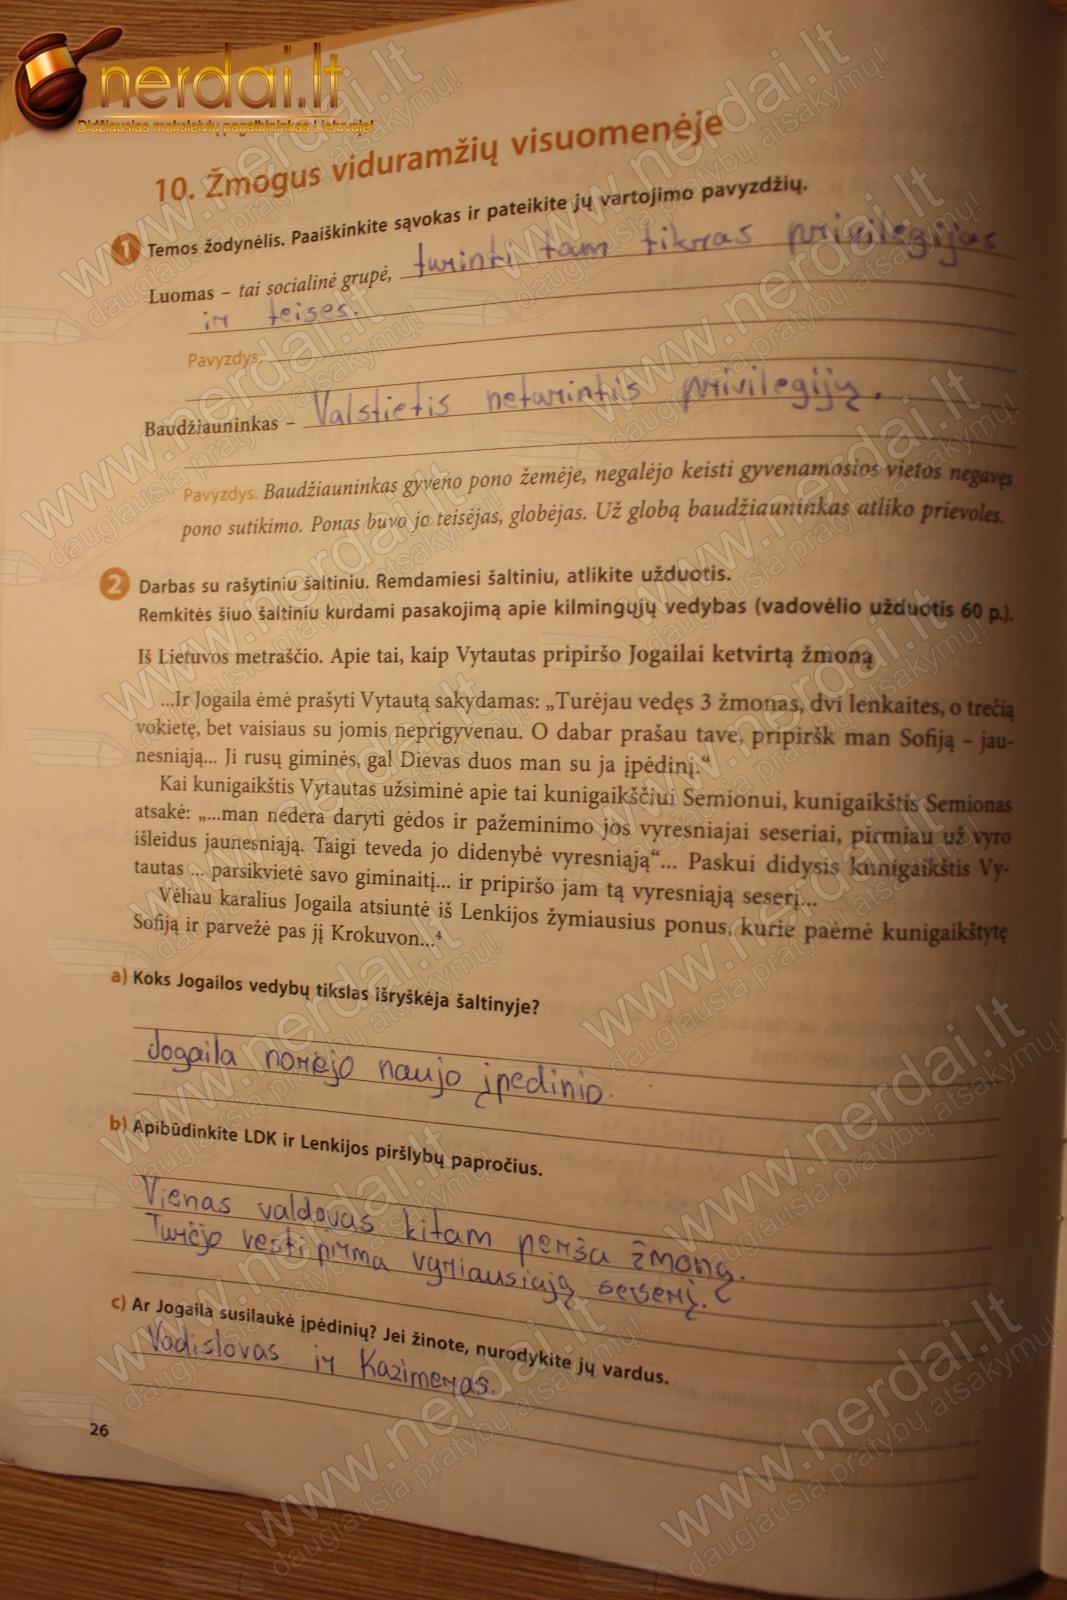 nerdai.lt
Didžiausias moksleivių pagalbininkas Lietuvoje!
10. Žmogus viduramžių visuomenėje
1 Temos žodynėlis. Paaiškinkite sąvokas ir pateikite jų vartojimo pavyzdžių.
Luomas – tai socialinė grupė, turinti tam tikras privilegijas
ir teises.
Pavyzdys.
Baudžiauninkas – Valstietis neturintis privilegijų.
Pavyzdys. Baudžiauninkas gyveno pono žemėje, negalėjo keisti gyvenamosios vietos negavęs
pono sutikimo. Ponas buvo jo teisėjas, globėjas. Už globą baudžiauninkas atliko prievoles.
2 Darbas su rašytiniu šaltiniu. Remdamiesi šaltiniu, atlikite užduotis.
Remkitės šiuo šaltiniu kurdami pasakojimą apie kilmingųjų vedybas (vadovėlio užduotis 60 p.).
Iš Lietuvos metraščio. Apie tai, kaip Vytautas pripiršo Jogailai ketvirtą žmoną
...Ir Jogaila ėmė prašyti Vytautą sakydamas: „Turėjau vedęs 3 žmonas, dvi lenkaites, o trečią
vokietę, bet vaisiaus su jomis neprigyvenau. O dabar prašau tave, pripiršk man Sofiją – jau-
nesniąją... Ji rusų giminės, gal Dievas duos man su ja įpėdinį.“
Kai kunigaikštis Vytautas užsiminė apie tai kunigaikščiui Semionui, kunigaikštis Semionas
atsakė: „...man nedera daryti gėdos ir pažeminimo jos vyresniajai seseriai, pirmiau už vyro
išleidus jaunesniąją. Taigi teveda jo didenybė vyresniąją“... Paskui didysis kunigaikštis Vy-
tautas ... parsikvietė savo giminaitį... ir pripiršo jam tą vyresniąją seserį...
Vėliau karalius Jogaila atsiuntė iš Lenkijos žymiausius ponus, kurie paėmė kunigaikštytę
Sofiją ir parvežė pas jį Krokuvon...⁴
a) Koks Jogailos vedybų tikslas išryškėja šaltinyje?
Jogaila norėjo naujo įpedinio.
b) Apibūdinkite LDK ir Lenkijos piršlybų papročius.
Vienas valdovas kitam perša žmoną.
Turėjo vesti pirma vyriausiąją seserį.
c) Ar Jogaila susilaukė įpėdinių? Jei žinote, nurodykite jų vardus.
Vadislovas ir Kazimeras.
26
www.nerdai.lt
daugiausia pratybų atsakymų!